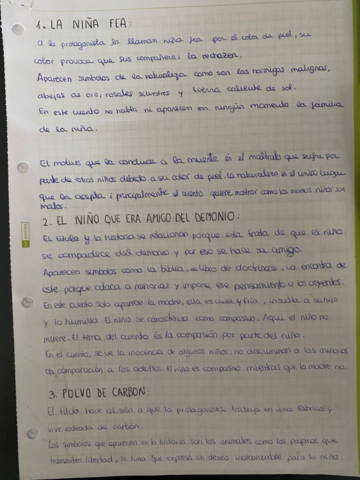 1. LA NIÑA FEA:
A la protagonista la llaman niña fea por el color de piel, su
color provoca que sus compañeros la rechazen.
Aparecen simbolos de la naturaleza como son las hormigas malignas,
abejas de oro, rosales silvestres y tierra caliente de sol.
En este cuento no habla ni aparecen en ningún momento la familia
de la niña.
El motivo que la conduce a la muerte es el maltrato que sufre por
parte de otros niños debido a su color de piel. la naturaleza es el único lugar
que la acepta i principalmente el cuento quiere mostrar como los mismos niños son
malos.
2. EL NIÑO QUE ERA AMIGO DEL DEMONIO:
El título y la historia se relacionan porque esta trata de que el niño
se compadece del demonio y por eso se hace su amigo.
Aparecen símbolos como la biblia, el libro de doctrinas, va encontra de
este porque ataca a minorias y impone ese pensamiento a los creyentes.
En este cuento solo aparece la madre, ella es cruel y fria, insulta a su hijo
y lo humilla. El niño se caracteriza como compasivo. Aqui el niño no
muere. El tema del cuento es la compasión por parte del niño.
En el cuento, se ve la inocencia de algunos niños, no discriminan a las minorias
en comparación a los adultos. El niño es compasivo mientras que la madre no.
3. POLVO DE CARBON:
El título hace alusión a que la protagonista trabaja en una fabrica y
vive rodeada de carbón.
Los simbolos que aparecen en la historia son los animales como los pajaros que
transmiten libertad, la luna que expresa un deseo inalcanzable para la niña.